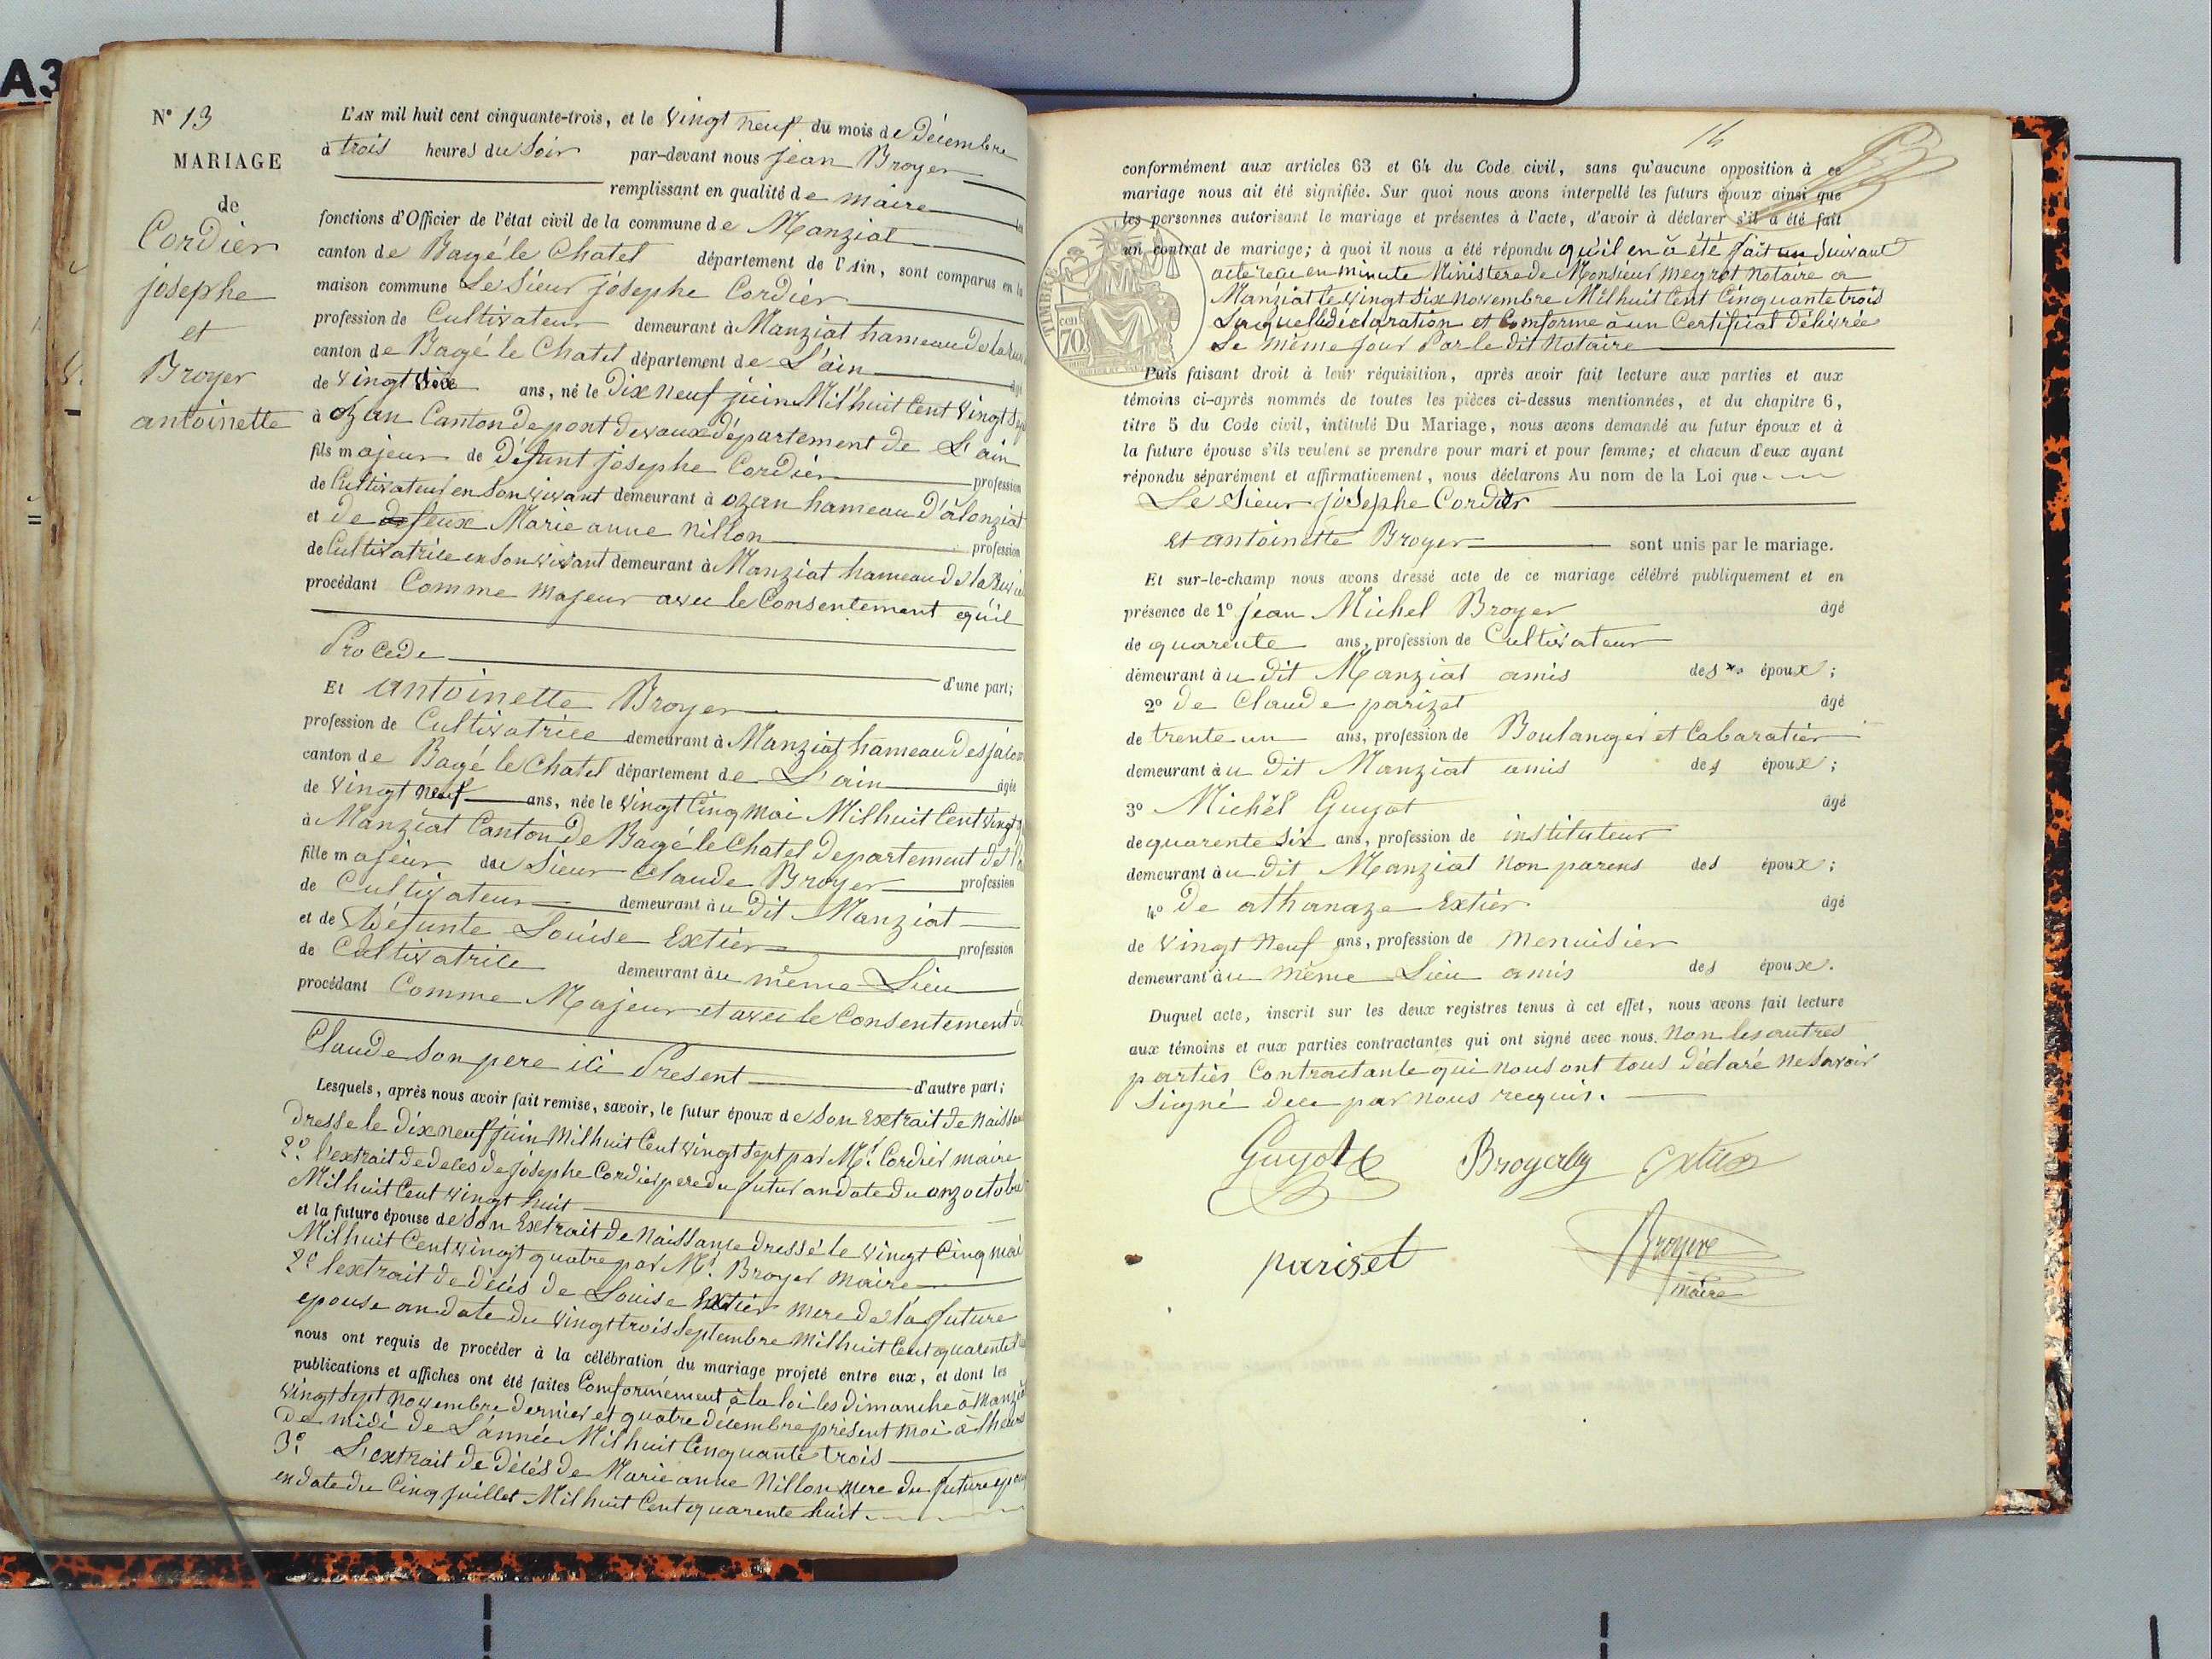 A3
N° 13
MARIAGE
de
Cordier
josephe
et
Broyer
antoinette
L'AN mil huit cent cinquante-trois, et le vingt neuf du mois de décembre
à trois heures du Soir par-devant nous jean Broyer
remplissant en qualité de maire les
fonctions d'Officier de l'état civil de la commune de Manziat
canton de Bagé le Chatel département de l'Ain, sont comparus en la
maison commune Le Sieur josephe Cordier
profession de Cultivateur demeurant à Manziat hameau de la
canton de Bagé le Chatel département de L'ain âgé
de vingt ans, né le Dix neuf juin Mil huit Cent vingt Sept
à ozan Canton de pont devaux département de L'ain
fils majeur de Défunt josephe Cordier profession
de Cultivateur en Son vivant demeurant à ozan hameau d'alonziat
et de feux Marie anne Nillon profession
de Cultivatrice en Son vivant demeurant à Manziat hameau de la
procédant Comme Majeur avec le Consentement qu'il
Procede d'une part;
Et antoinette Broyer
profession de Cultivatrice demeurant à Manziat hameau des
canton de Bagé le Chatel département de L'ain âgée
de vingt neuf ans, née le vingt Cinq mai Mil huit Cent vingt
à Manziat Canton de Bagé le Chatel departement de
fille majeur du Sieur Claude Broyer profession
de Cultivateur demeurant au dit Manziat
et de Défunte Louise Extier profession
de Cultivatrice demeurant au même Lieu
procédant Comme Majeur et avec le Consentement de
Claude Son pere ici Present d'autre part;
Lesquels, après nous avoir fait remise, savoir, le futur époux de Son Extrait de Naissance
dresse le dix neuf juin Mil huit Cent vingt Sept par Mr. Cordier maire
2° l'extrait de deces de josephe Cordier pere du futur an date du onz octobre
Mil huit Cent vingt huit
et la future épouse de Son Extrait de Naissance dressé le vingt Cinq mai
Mil huit Cent vingt quatre par Mr. Broyer maire
2° l'extrait de décés de Louise Extier mere de la future
epouse an date du vingt trois Septembre Mil huit Cent quarente
nous ont requis de procéder à la célébration du mariage projeté entre eux, et dont les
publications et affiches ont été faites Conformément à la loi les dimanche à Manziat
vingt Sept Novembre dernier et quatre décembre présent moi à l'heure
de midi de L'année Mil huit Cinquante trois
3° L'extrait de décés de Marie anne Nillon mere du future epoux
en date du Cinq juillet Mil huit Cent quarente huit
conformément aux articles 63 et 64 du Code civil, sans qu'aucune opposition à ce
mariage nous ait été signifiée. Sur quoi nous avons interpellé les futurs époux ainsi que
les personnes autorisant le mariage et présentes à l'acte, d'avoir à déclarer s'il a été fait
un contrat de mariage; à quoi il nous a été répondu qu'il en à été fait un Suivant
acte reçu en minute Ministere de Monsieur Meyrot Notaire a
Manziat le vingt Six Novembre Mil huit Cent Cinquante trois
Laquelle déclaration et Comforme à un Certificat délivrée
Le même jour Par le dit Notaire
TIMBRE
70
Puis faisant droit à leur réquisition, après avoir fait lecture aux parties et aux
témoins ci-après nommés de toutes les pièces ci-dessus mentionnées, et du chapitre 6,
titre 5 du Code civil, intitulé Du Mariage, nous avons demandé au futur époux et à
la future épouse s'ils veulent se prendre pour mari et pour femme; et chacun d'eux ayant
répondu séparément et affirmativement, nous déclarons Au nom de la Loi que
Le Sieur josephe Cordier
et antoinette Broyer sont unis par le mariage.
Et sur-le-champ nous avons dressé acte de ce mariage célébré publiquement et en
présence de 1° jean Michel Broyer âgé
de quarente ans, profession de Cultivateur
demeurant au dit Manziat amis des époux;
2° de Claude parizet âgé
de trente un ans, profession de Boulanger et Cabaratier
demeurant au dit Manziat amis des époux;
3° Michel Guyot âgé
de quarente Six ans, profession de instituteur
demeurant au dit Manziat Non parens des époux;
4° de athanaze Extier âgé
de vingt Neuf ans, profession de Menuisier
demeurant au même Lieu amis des époux.
Duquel acte, inscrit sur les deux registres tenus à cet effet, nous avons fait lecture
aux témoins et aux parties contractantes qui ont signé avec nous. Non les autres
partiér Contractante qui nous ont tous déclaré Ne Savoir
Signé dece par nous requis.
Guyot Broyer Extier
pariset Broyer
maire